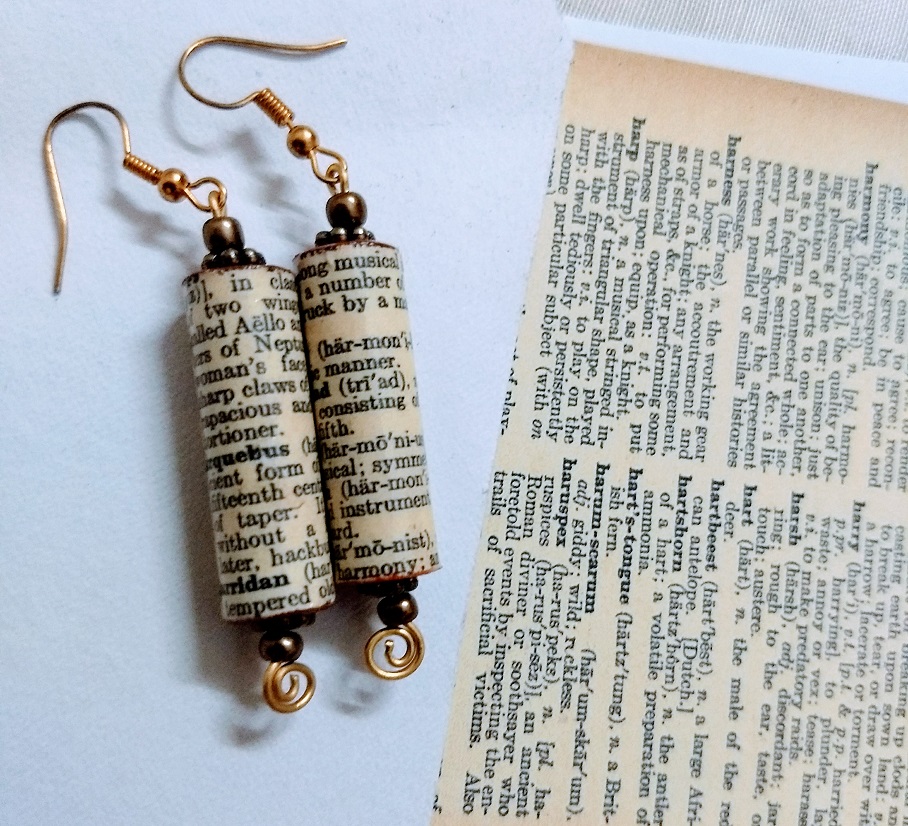 )], in clas
two wing
lled Aëllo a
rs of Nept
oman's fac
arp claws o
apacious and
ortioner.
quebus (h
ent form o
ifteenth cent
f taper.
without a
ater, hackb
rridan (har
empered ol
ong musical
a number o
ruck by a m
(här-mon'i-
manner.
d (trī'ad),
consisting o
fifth.
här-mō'ni-u
ical; symme
(här-mon'
instrument
rd.
är'mō-nist),
harmony; a
cause to agree; recon-
cile; v.i. to agree; be in peace and
friendship; correspond.
harmony (här'mō-ni), n. [pl. harmo-
nies (här'mō-niz)], the quality of be-
ing pleasing to the ear; unison; just
adaptation of parts to one another,
so as to form a connected whole; ac-
cord in feeling, sentiment, &c.; a lit-
erary work showing the agreement
between parallel or similar histories
or passages.
harness (här'nes), n. the working gear
of a horse; the accoutrement and
armor of a knight; any arrangement,
as of straps, &c., for performing some
mechanical operation: v.t. to put
harness upon; equip, as a knight.
harp (härp), n. a musical stringed in-
strument of triangular shape, played
with the fingers: v.i. to play on the
harp; dwell tediously or persistently
on some particular subject (with on
of play-
breaking up
casting earth upon sown land: v.
to break up, tear, or draw over wit
a harrow; lacerate or torment.
harry (har'i), v.t. [p.t. & p.p. harried
p.pr. harrying], to plunder, la
waste; annoy or vex; tease; harass
v.i. to make predatory raids.
harsh (härsh), adj. discordant; jar
ring; rough to the ear, taste, o
touch; austere.
hart (härt), n. the male of the red
deer.
hartbeest (härt'bēst), n. a large Afri-
can antelope. [Dutch.]
hartshorn (härtz'hôrn), n. the antler
of a hart; a volatile preparation of
ammonia.
hart's-tongue (härtz'tung), n. a Brit-
ish fern.
harum-scarum (hār'um-skār'um),
adj. giddy; wild, reckless.
haruspex (ha-rus'peks), n. [pl. ha-
ruspices (ha-rus'pi-sēz)], an ancient
Roman diviner or soothsayer who
foretold events by inspecting the en-
trails of sacrificial victims. Also
of